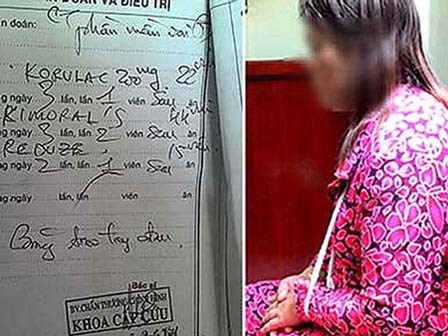 ĐOÁN VÀ ĐIỀU TRỊ
n đoán: phần mềm
KORULAC 200mg. 22
ng ngày 3 lần, lần 1 viên sau ăn
KIMORAL'S 44
ng ngày 3 lần, lần 2 viên sau ăn
REDUZE. 15
ng ngày 2 lần, lần 1 viên sau ăn
ng ngày lần, lần viên ăn
Băng treo tay
Bác sĩ
BV.CHẤN THƯƠNG CHỈNH HÌNH
KHOA CẤP CỨU